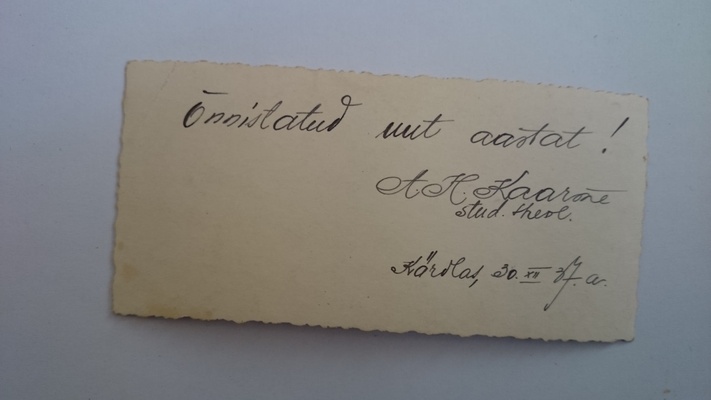 Õnnistatud uut aastat!
A. H. Kaarone
stud. theol.
Kärdlas, 30. XII 37. a.